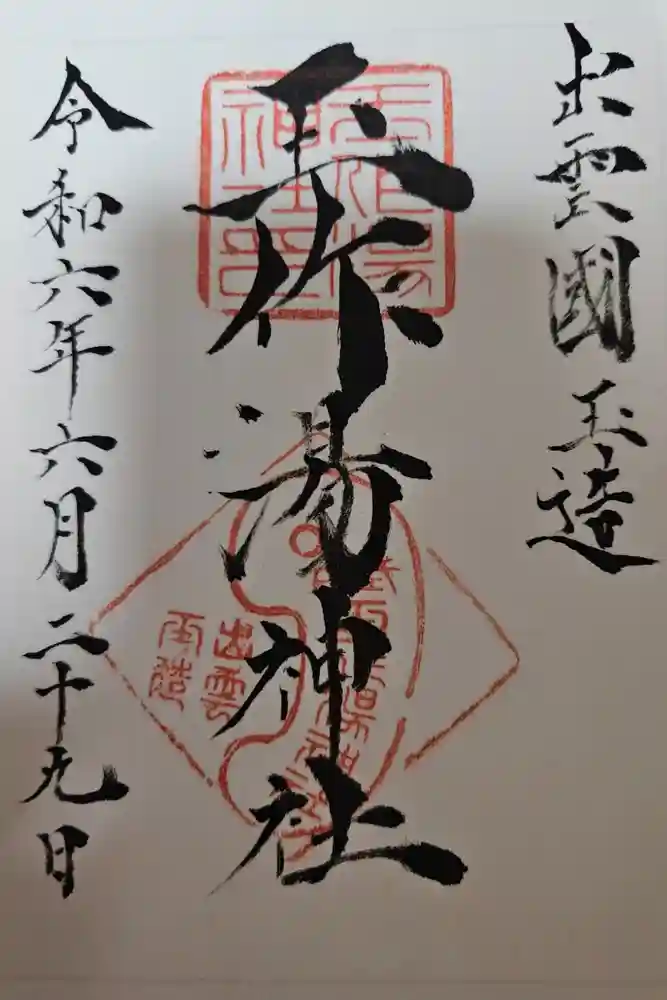 出雲國玉造
玉作湯神社
令和六年六月二十九日
出雲
玉造